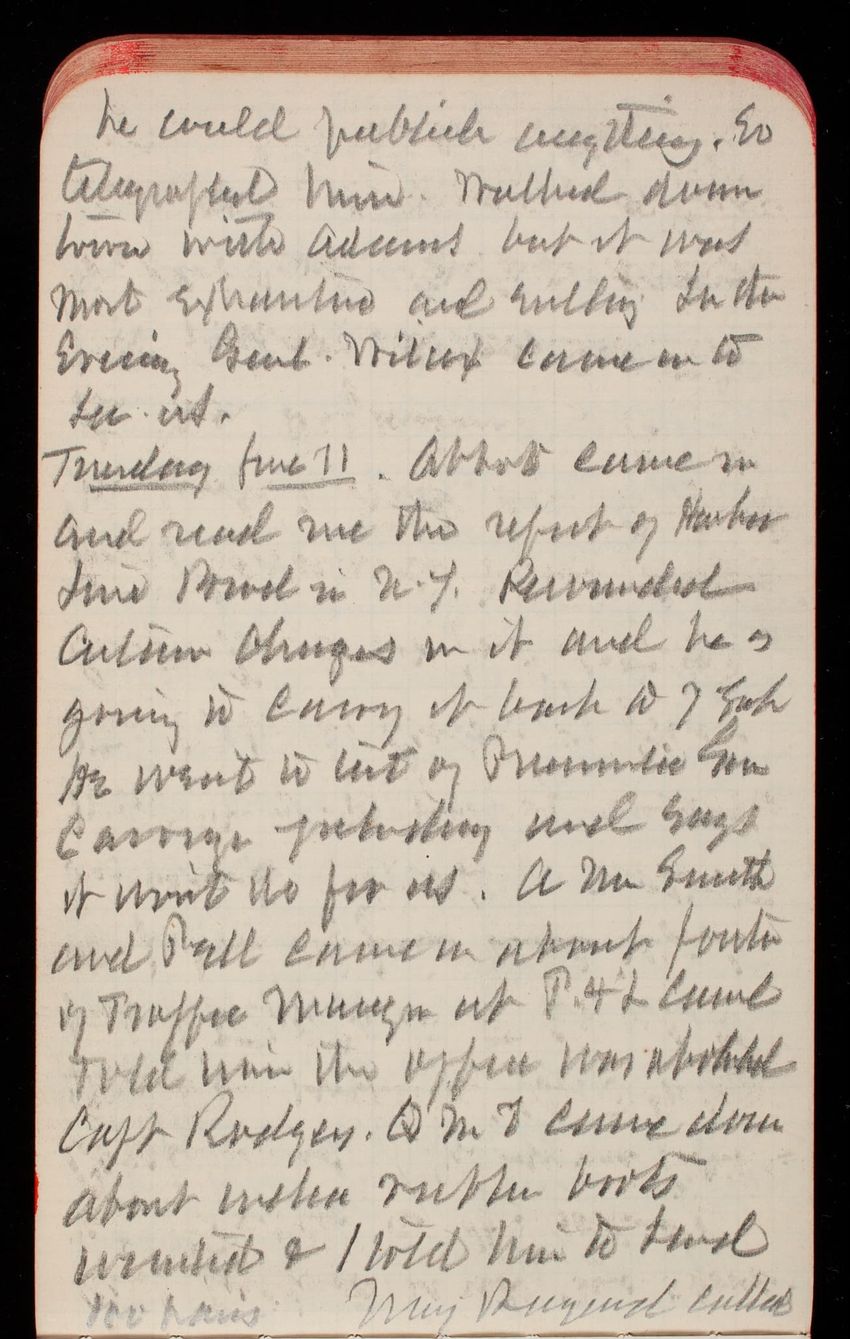 he could publish anything. So
telegraphed him. Walked down
town with Adams but it was
most exhausting and sultry In the
Evening Genl. Wilcox came in to
see us.
Tuesday June 11. Abbot came in
and read me the report of Harbor
Line Board in N.Y. Recommended
Certain changes in it and he is
going to carry it back to N York
He went to test of Pneumatic Gun
Carriage yesterday and says
it wont do for us. A Mr Smith
and Pell came in about
of Traffic Manager at P. & L Canal
Told him the office was abolished
Capt Rodgers. Q M D came down
about rubber boots
wanted & I told him to send
100 pairs May called